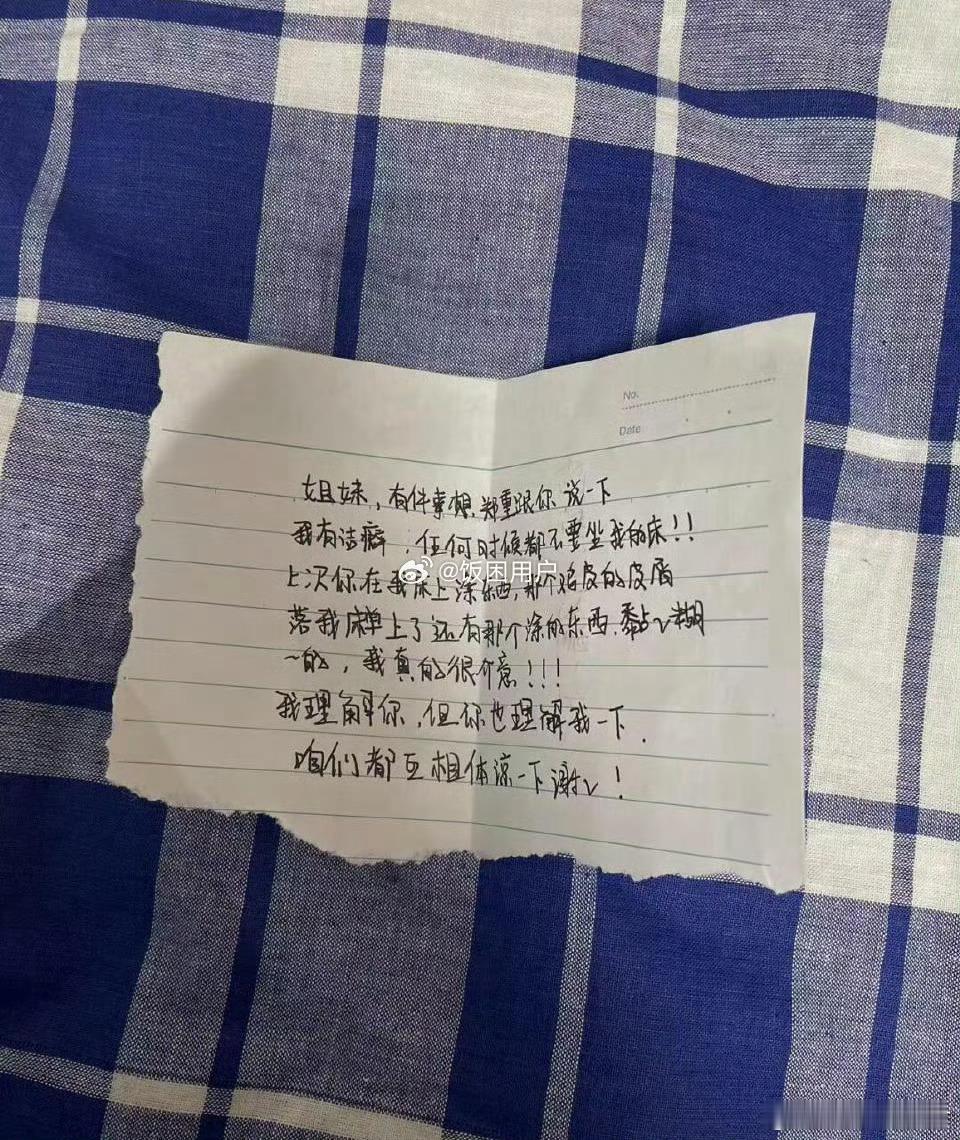 No.
Date
姐妹，有件事想郑重跟你说一下
我有洁癖，任何时候都不要坐我的床！！
@饭困用户
上次你在我床上涂东西，那个鸡皮的皮屑
落我床单上了还有那个涂的东西，黏~糊
~的，我真的很介意！！！
我理解你，但你也理解我一下．
咱们都互相体谅一下谢~！